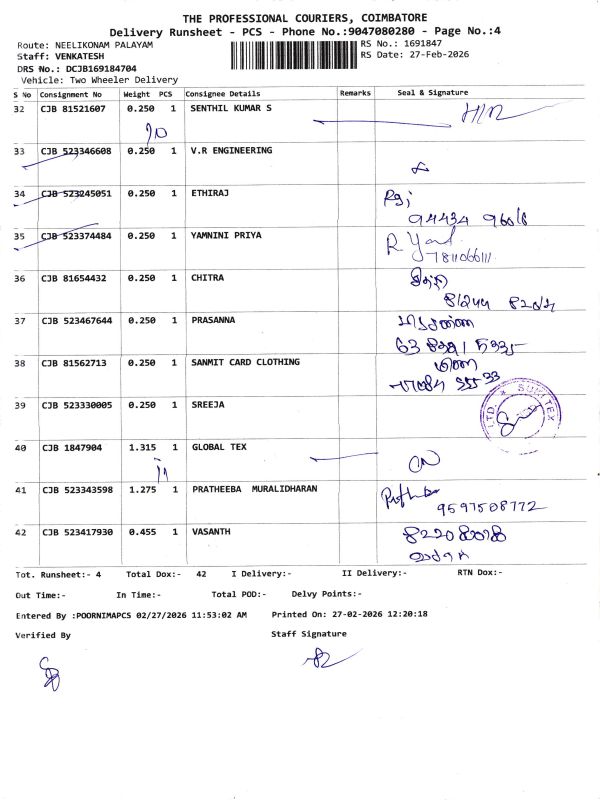 THE PROFESSIONAL COURIERS, COIMBATORE
Delivery Runsheet - PCS - Phone No.:9047080280 - Page No.:4
Route: NEELIKONAM PALAYAM
RS No.: 1691847
Staff: VENKATESH
RS Date: 27-Feb-2026
DRS No.: DCJB169184704
Vehicle: Two Wheeler Delivery
S No Consignment No Weight PCS Consignee Details Remarks Seal & Signature
32 CJB 81521607 0.250 1 SENTHIL KUMAR S
33 CJB 523346608 0.250 1 V.R ENGINEERING
34 CJB 523245051 0.250 1 ETHIRAJ
35 CJB 523374484 0.250 1 YAMNINI PRIYA
36 CJB 81654432 0.250 1 CHITRA
சித்ரா
37 CJB 523467644 0.250 1 PRASANNA
38 CJB 81562713 0.250 1 SANMIT CARD CLOTHING
39 CJB 523330005 0.250 1 SREEJA
LTD. ★ SUN TEX
40 CJB 1847904 1.315 1 GLOBAL TEX
41 CJB 523343598 1.275 1 PRATHEEBA MURALIDHARAN
9597508772
42 CJB 523417930 0.455 1 VASANTH
Tot. Runsheet:- 4 Total Dox:- 42 I Delivery:- II Delivery:- RTN Dox:-
Out Time:- In Time:- Total POD:- Delvy Points:-
Entered By :POORNIMAPCS 02/27/2026 11:53:02 AM Printed On: 27-02-2026 12:20:18
Verified By Staff Signature